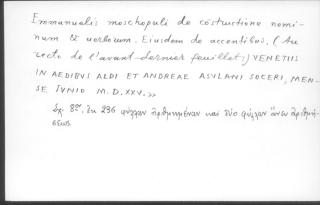 Emmanuelis moschopuli de cōstructione nomi-
num & uerborum. Eiusdem de accentibus. (Au
recto de l'avant dernier feuillet:) VENETIIS
IN AEDIBVS ALDI ET ANDREAE ASVLANI SOCERI, MEN-
SE IVNIO M.D.XXV. »
Σχ. 8ον, ἐκ 236 φύλλων ἀριθμημένων καὶ δύο φύλλων ἄνευ ἀριθμή-
σεως.